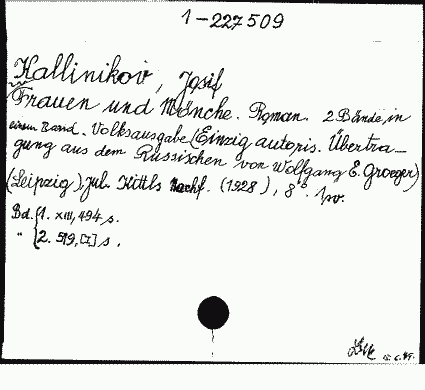 1-227509
Kallinikov, Josif
Frauen und Mönche. Roman. 2 Bände in
einem Band. Volksausgabe (Einzig autoris. Übertra-
gung aus dem Russischen von Wolfgang E. Groeger)
(Leipzig), Jul. Kittls Nachf. (1928), 8°. 1 sv.
Bd. {1. XIII, 494 s.
" {2. 519, [1] s.